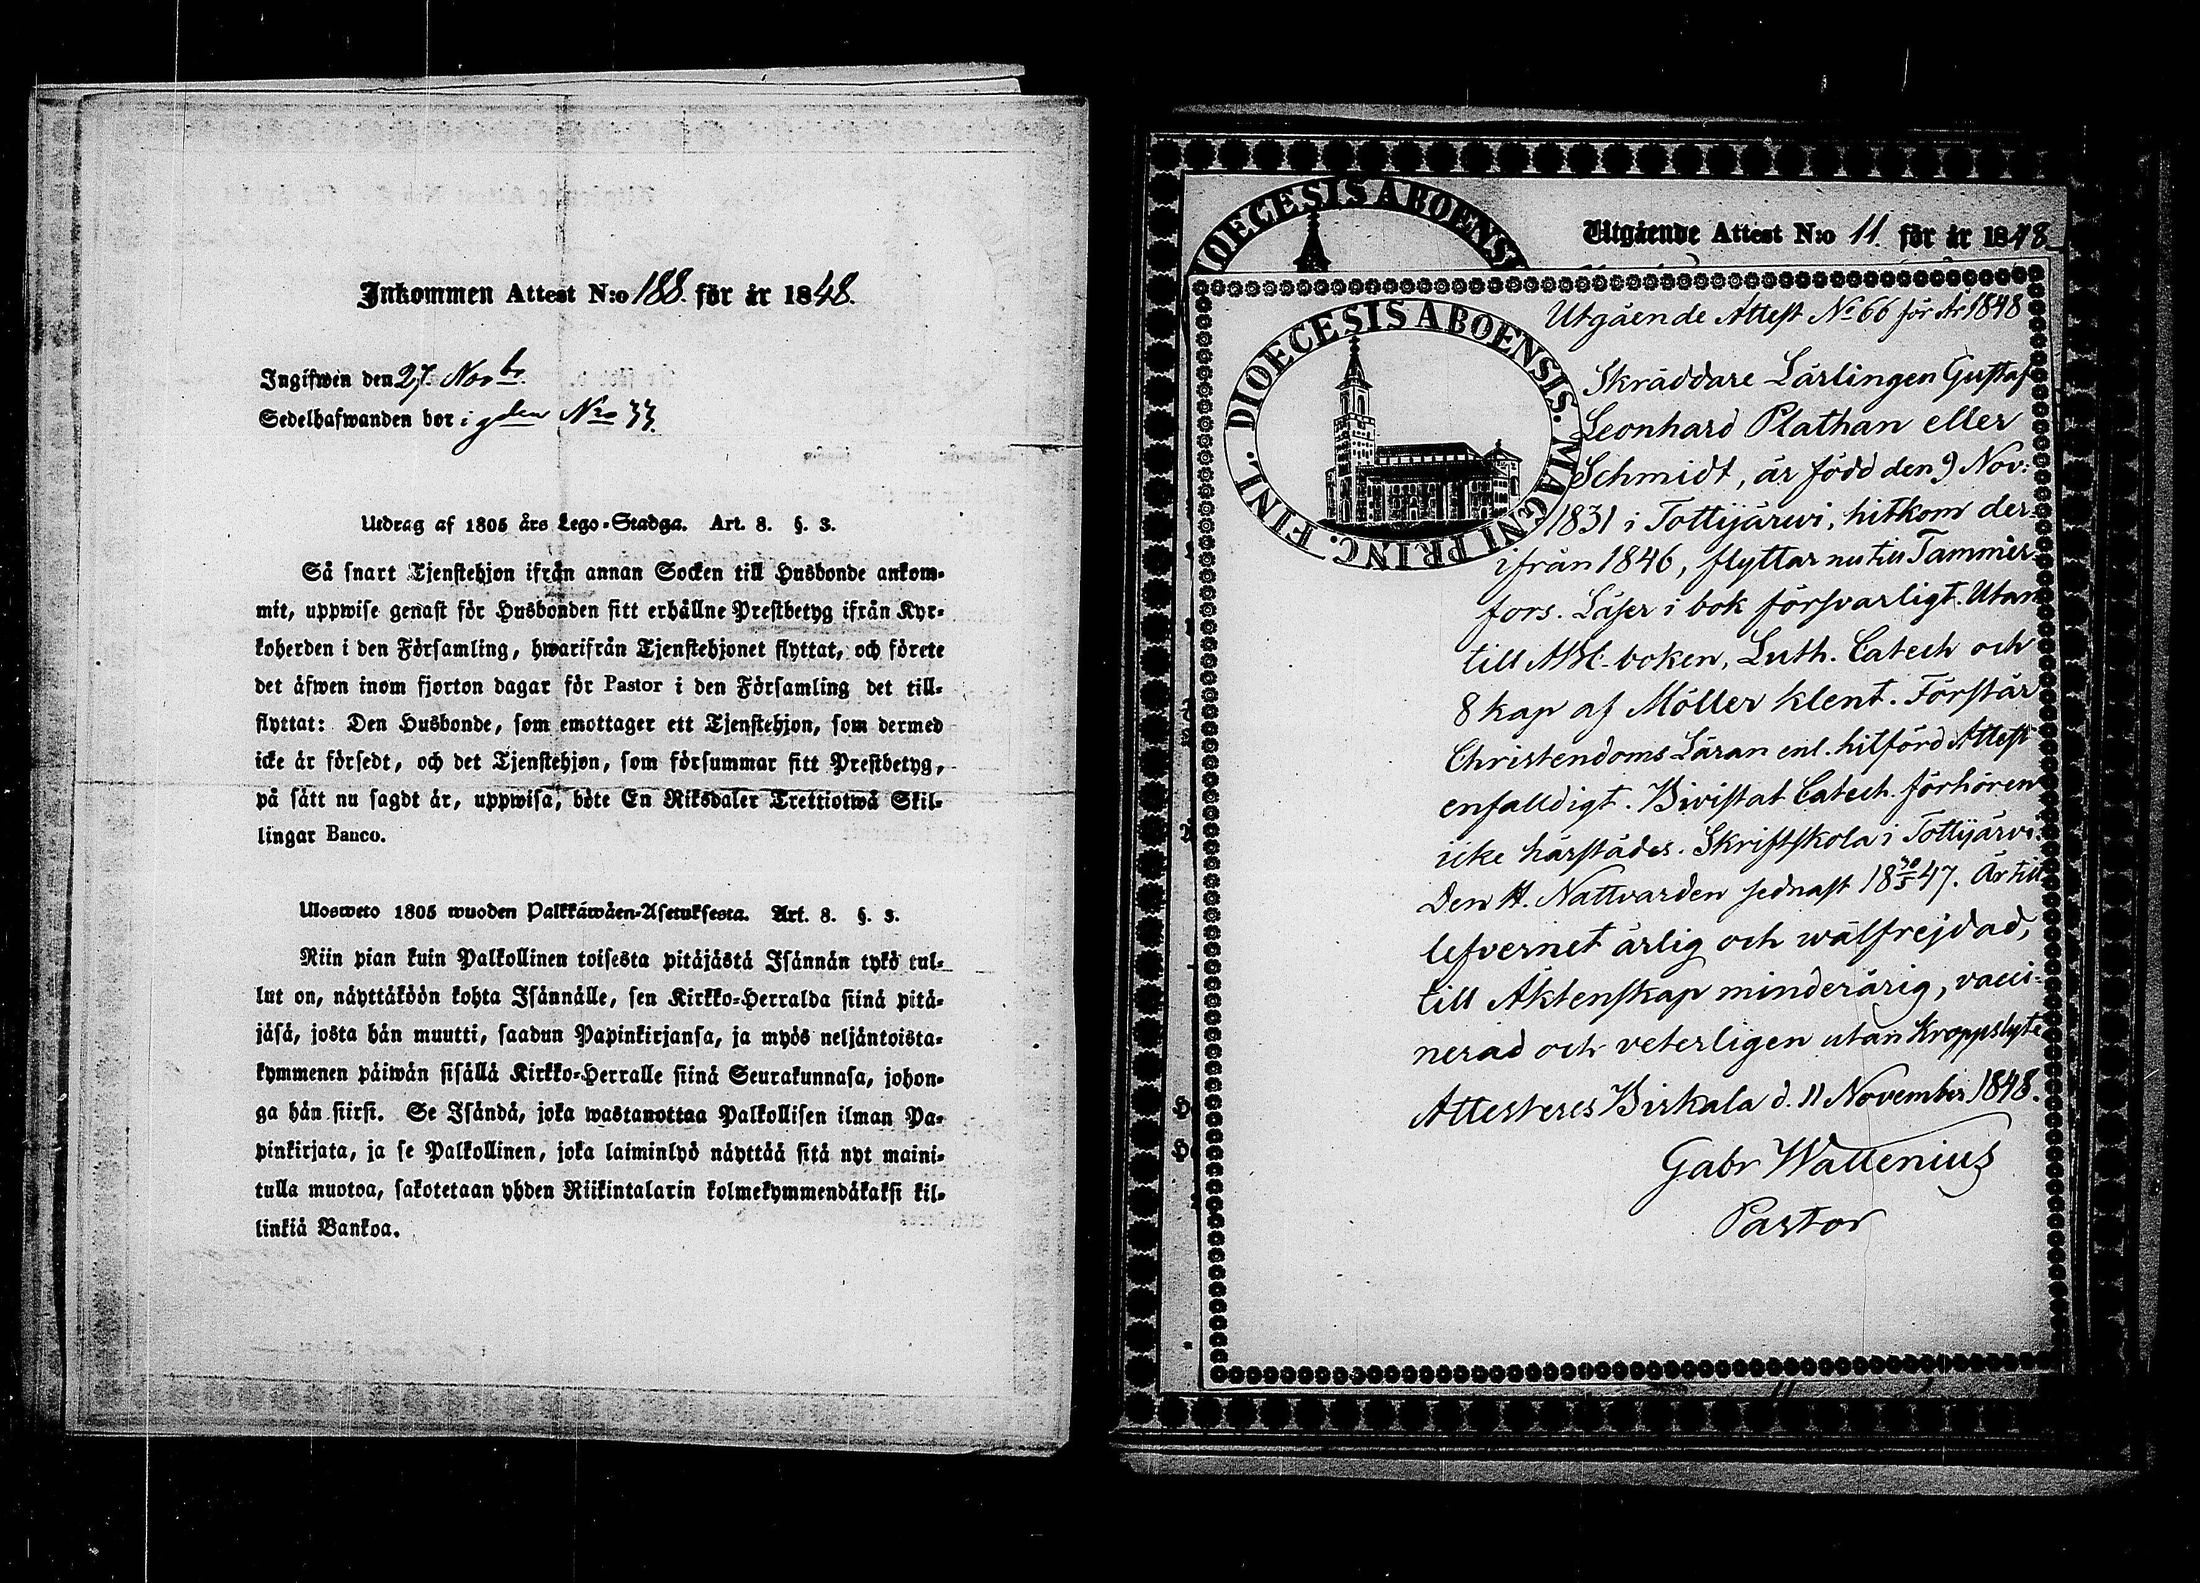 Inkommen Attest N:o 188. för år 1848.
Ingifwen den 27. Novbr.
Sedelhafwanden bor i gden Nro 33.
Utdrag af 1805 års Lego-Stadga. Art. 8. §. 3.
Så snart Tjenstehjon ifrån annan Socken till Husbonde ankom-
mit, uppwise genast för Husbonden sitt erhållne Prestbetyg ifrån Kyr-
koherden i den Församling, hwarifrån Tjenstehjonet flyttat, och förete
det äfwen inom fjorton dagar för Pastor i den Församling det till-
flyttat: Den Husbonde, som emottager ett Tjenstehjon, som dermed
icke är försedt, och det Tjenstehjon, som försummar sitt Prestbetyg,
på sätt nu sagdt är, uppwisa, böte En Riksdaler Trettiotwå Skil-
lingar Banco.
Uloswето 1805 wuoden Palkkäwäen-Asetuksesta. Art. 8. §. 3.
Niin pian kuin Palkollinen toisesta pitäjästä Isännän tykö tul-
lut on, näyttäköön kohta Isännälle, sen Kirkko-Herralda siinä pitä-
jäsä, josta hän muutti, saadun Papinkirjansa, ja myös neljäntoista-
kymmenen päiwän sisällä Kirkko-Herralle siinä Seurakunnasa, johon-
ga hän siirsi. Se Isändä, joka wastanottaa Palkollisen ilman Pa-
pinkirjata, ja se Palkollinen, joka laiminlyö näyttää sitä nyt maini-
tulla muotoa, sakotetaan yhden Riikintalarin kolmekymmendäkaksi kil-
linkiä Bankoa.
DIOECESIS ABOENSI
Utgående Attest N:o 11. för år 1848
Utgående Attest No 66 för År 1848
DIOECESIS ABOENSIS. MAGNI PRINC. FINL.
Skräddare Lärlingen Gustaf
Leonhard Plathan eller
Schmidt, är född den 9 Nov:
1831 i Tottijärvi, hitkom der-
ifrån 1846, flyttar nu till Tammer-
fors. Läser i bok försvarligt. Utan
till ABC-boken, Luth. Catech och
8 kap af Möller klent. Förstår
Christendoms Läran enl. hitförd Attest
enfalldigt. Bivistat Catech. förhören
icke härstädes. Skriftskola i Tottijärvi.
Den H. Nattvarden sednast 18 30/5 47. Är till
lefvernet ärlig och wälfrejdad,
till Äktenskap minderårig, vacci-
nerad och veterligen utan kroppslyte
Attesteres Birkala d. 11 November 1848.
Gabr Wallenius
Pastor